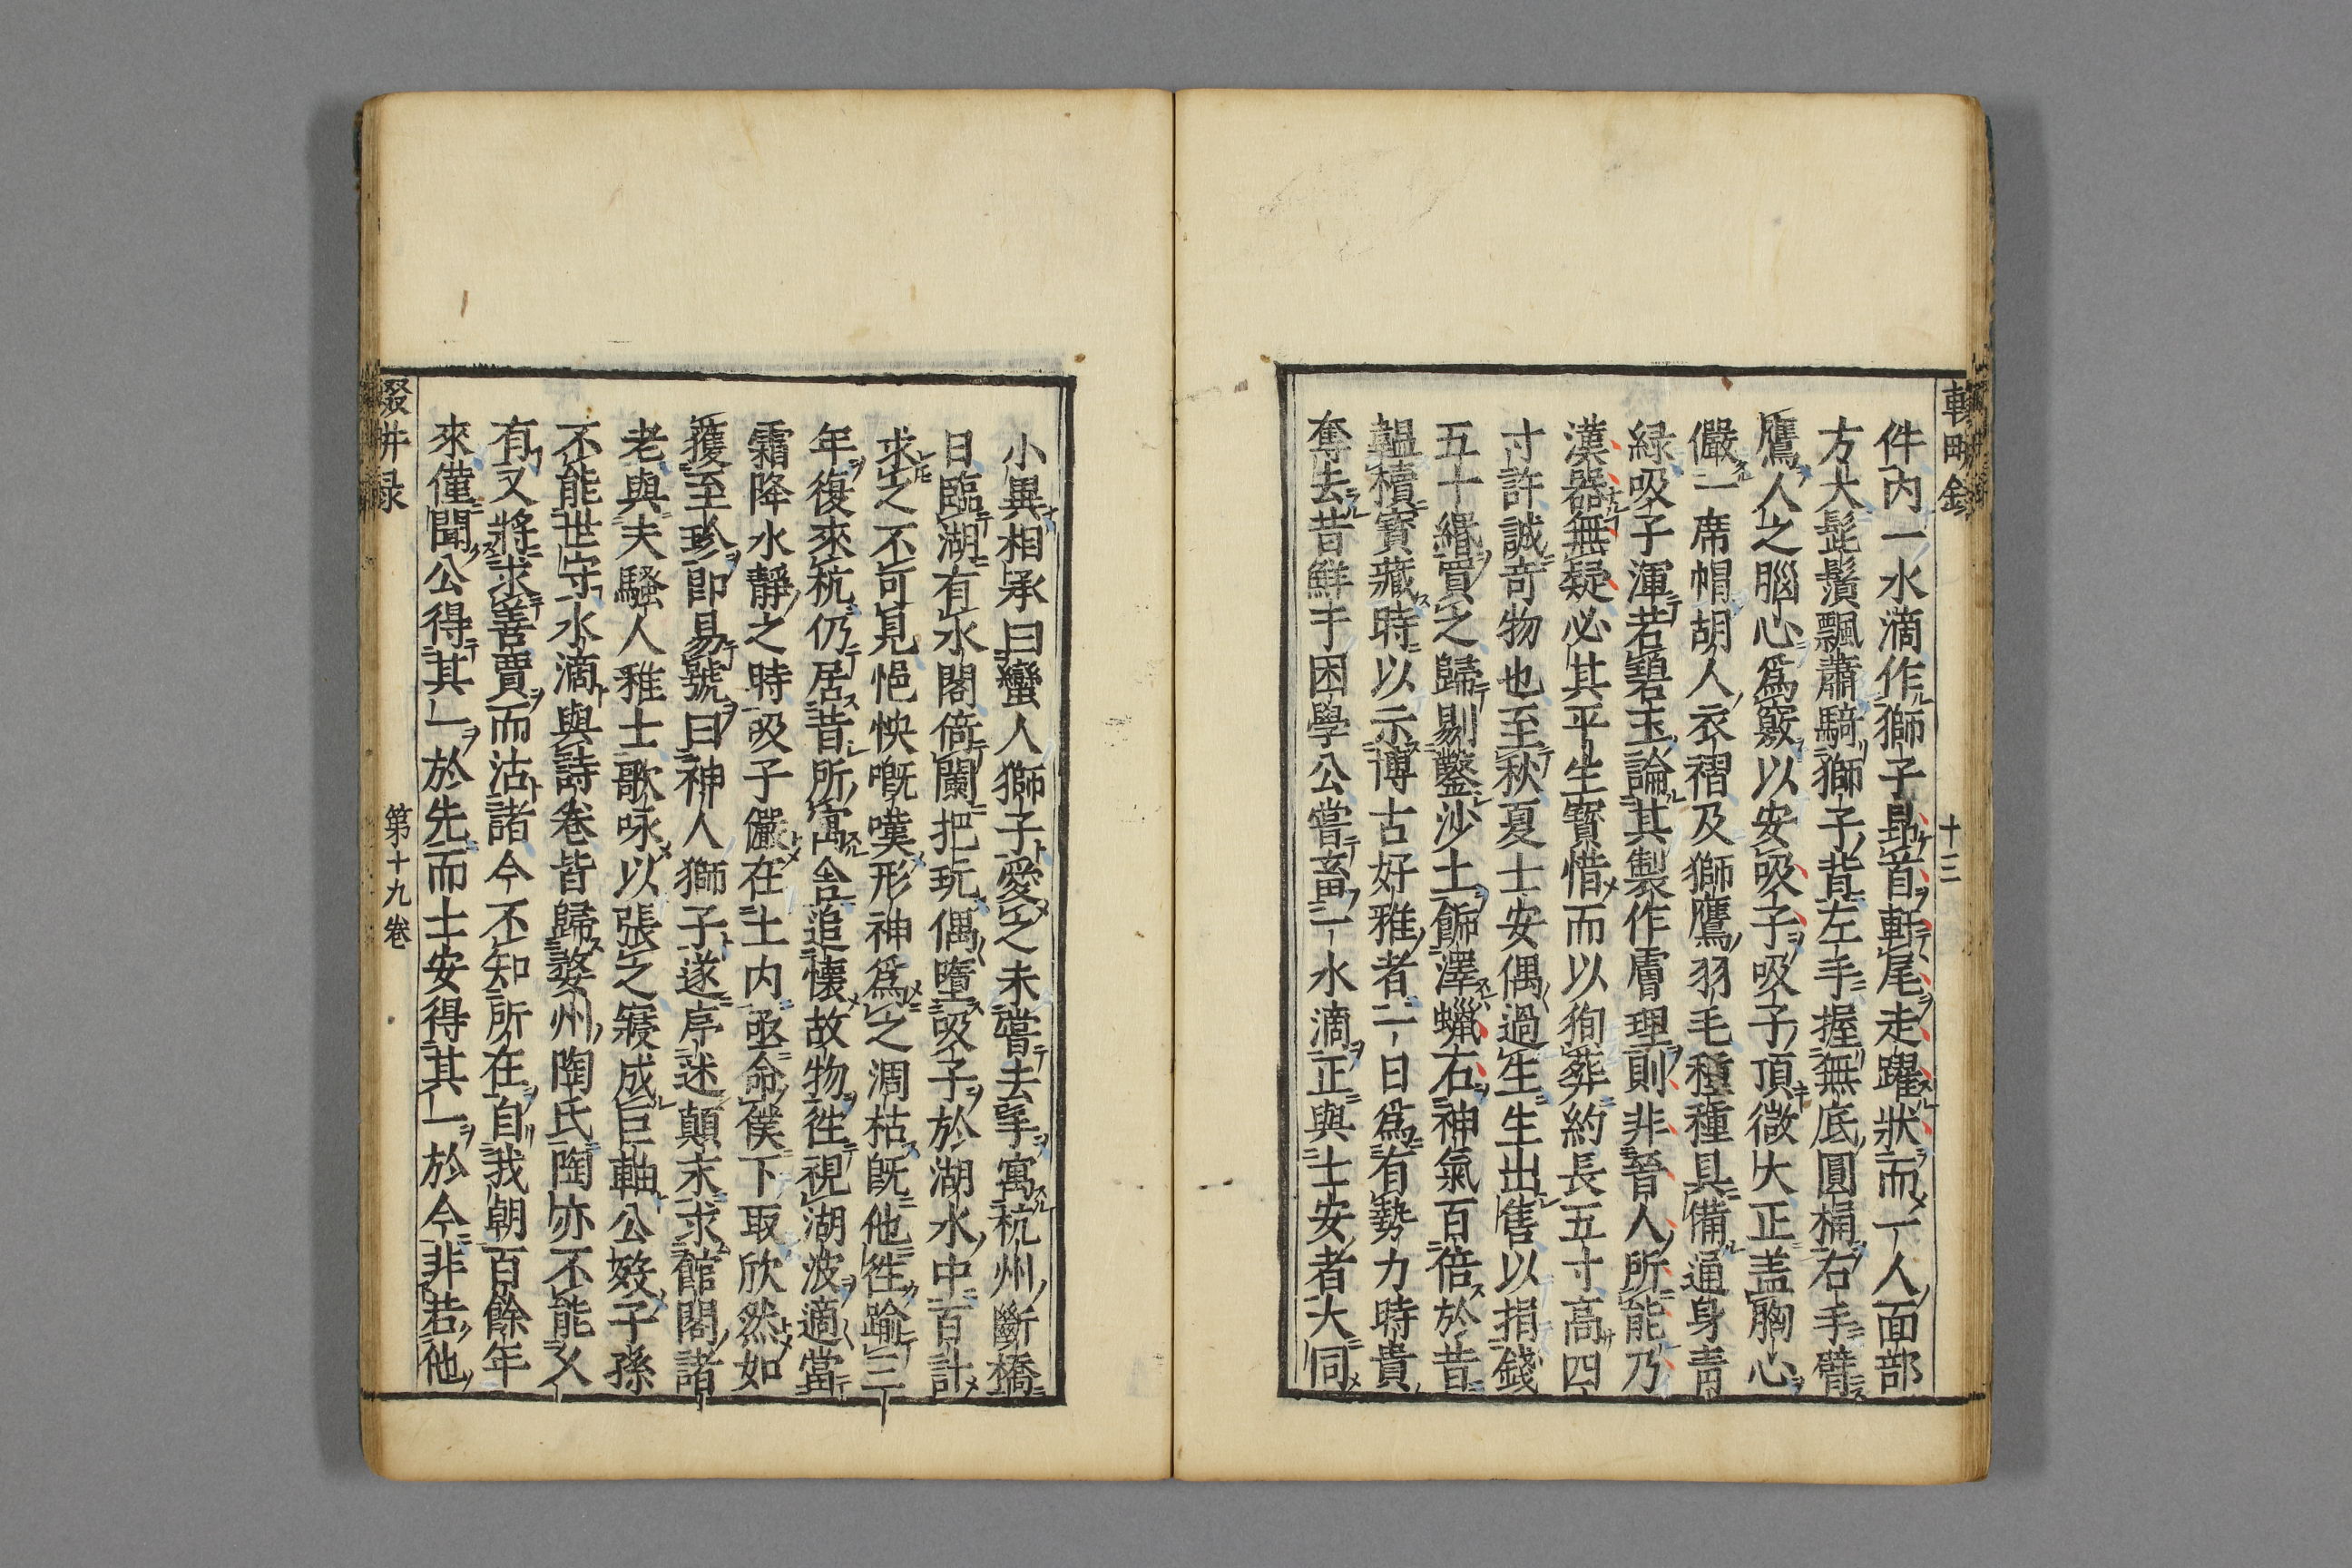 件內一水滴作獅子昻首軒尾走躍狀而一人面部
方大髭鬚飄蕭騎獅子背左手握無底圓桶右手臂
鷹人之腦心爲竅以安吸子吸子頂微大正盖胸心
儼一席帽胡人衣褶及獅鷹羽毛種種具備通身靑
緑吸子渾若碧玉論其製作膚理則非晉人所能乃
漢器無疑必其平生寳惜而以狥葬約長五寸高四
寸許誠竒物也至秋夏士安偶過生生出售以捐錢
五十緡買之歸剔鑿沙土飾澤蠟石神氣百倍於昔
韞櫝寳藏時以示博古好雅者一日爲有勢力時貴
奪去昔鮮于困學公嘗畜一水滴正與士安者大同
小異相承曰蠻人獅子愛之未嘗去手寓杭州斷橋
日臨湖有水閣倚闌把玩偶墮吸子於湖水中百計
求之不可見悒怏嘅嘆形神爲之凋枯旣他徃踰三
年復來杭仍居昔所寓舍追懷故物徃視湖波適當
霜降水靜之時吸子儼在土内亟命僕下取欣然如
獲至珍卽易號曰神人獅子遂序述顛末求館閣諸
老與夫騷人雅士歌咏以張之寢成巨軸公歿子孫
不能世守水滴與詩卷皆歸婺州陶氏陶亦不能乆
有又將求善賈而沽諸今不知所在自我朝百餘年
來僅聞公得其一於先而士安得其一於今非若他
十三
第十九卷